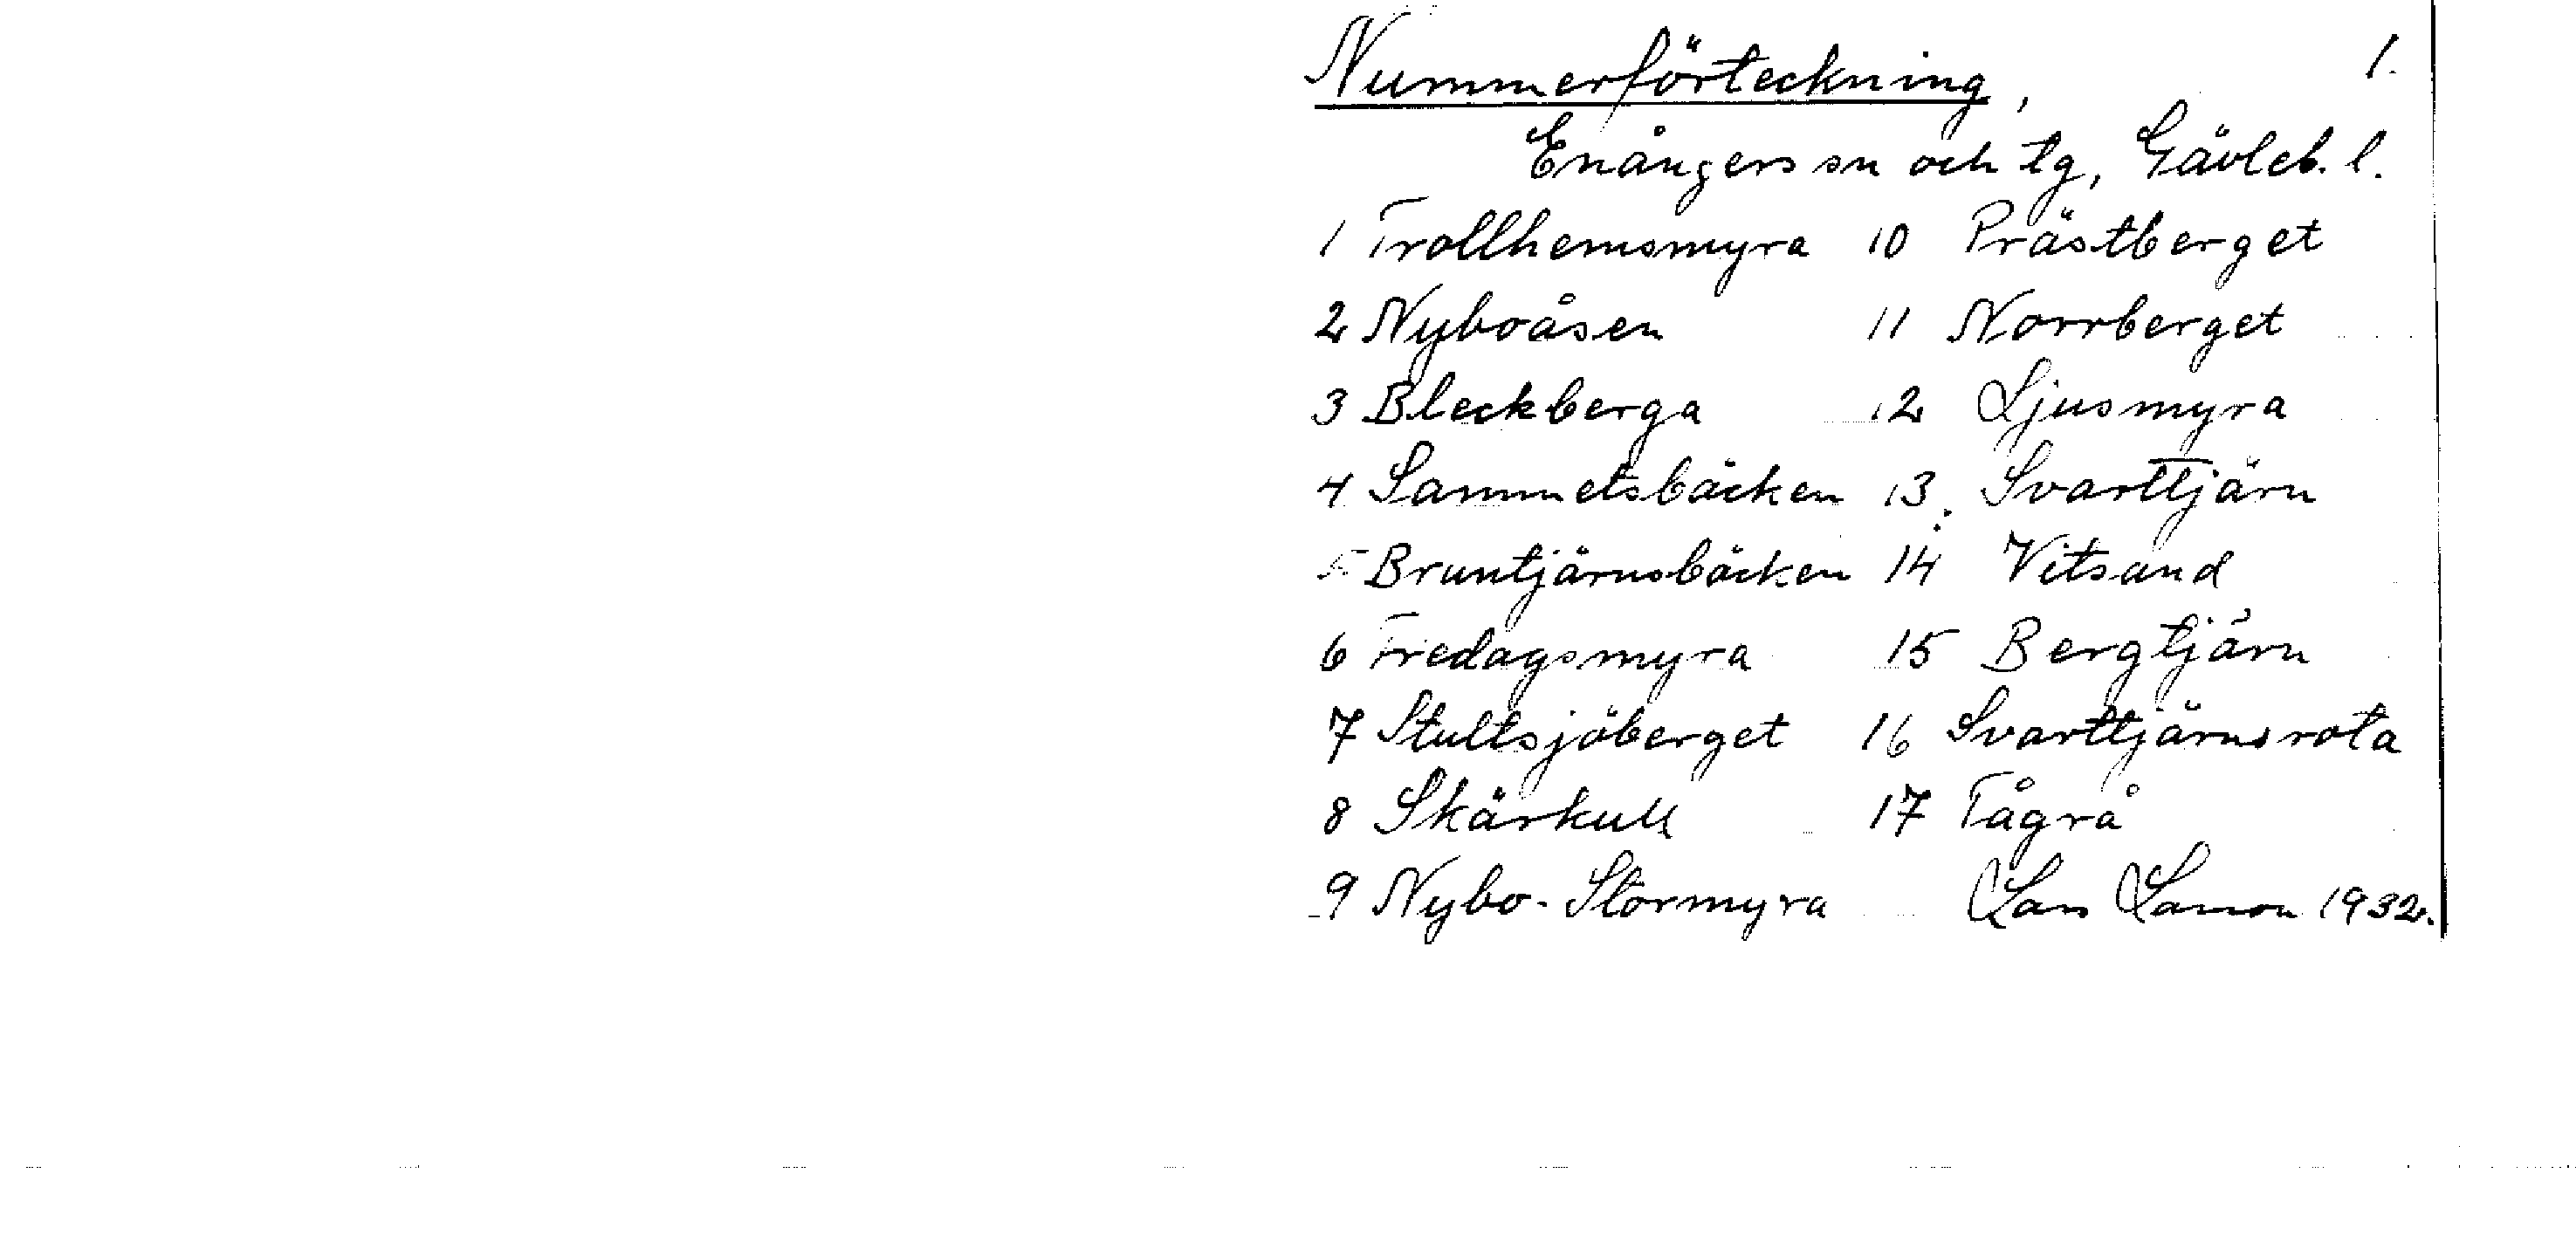 Nummerförteckning, 1.
Enångers sn och tg, Gävleb. l.
1 Trollhemsmyra 10 Prästberget
2 Nyboåsen 11 Norrberget
3 Bleckberga 12 Ljusmyra
4 Sammetsbäcken 13. Svarttjärn
5 Bruntjärnsbäcken 14 Vitsand
6 Fredagsmyra 15 Bergtjärn
7 Stultsjöberget 16 Svarttjärnsrota
8 Skärkull 17 Tågrå
9 Nybo-Stormyra Lars Larson 1932.